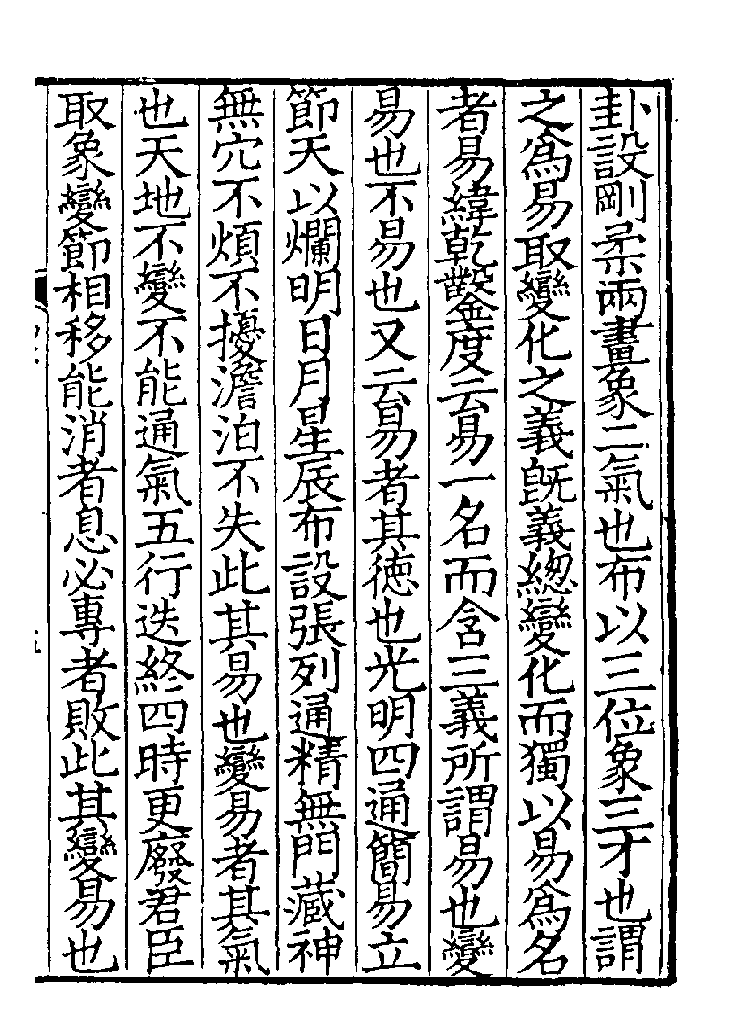 卦設剛柔兩畫象二氣也布以三位象三才也謂
之爲易取變化之義旣義緫變化而獨以易爲名
者易緯乾鑿度云易一名而含三義所謂易也變
易也不易也又云易者其徳也光明四通簡易立
節天以爛明日月星辰布設張列通精無門藏神
無穴不煩不擾澹泊不失此其易也變易者其氣
也天地不變不能通氣五行迭終四時更廢君臣
取象變節相移能消者息必專者敗此其變易也